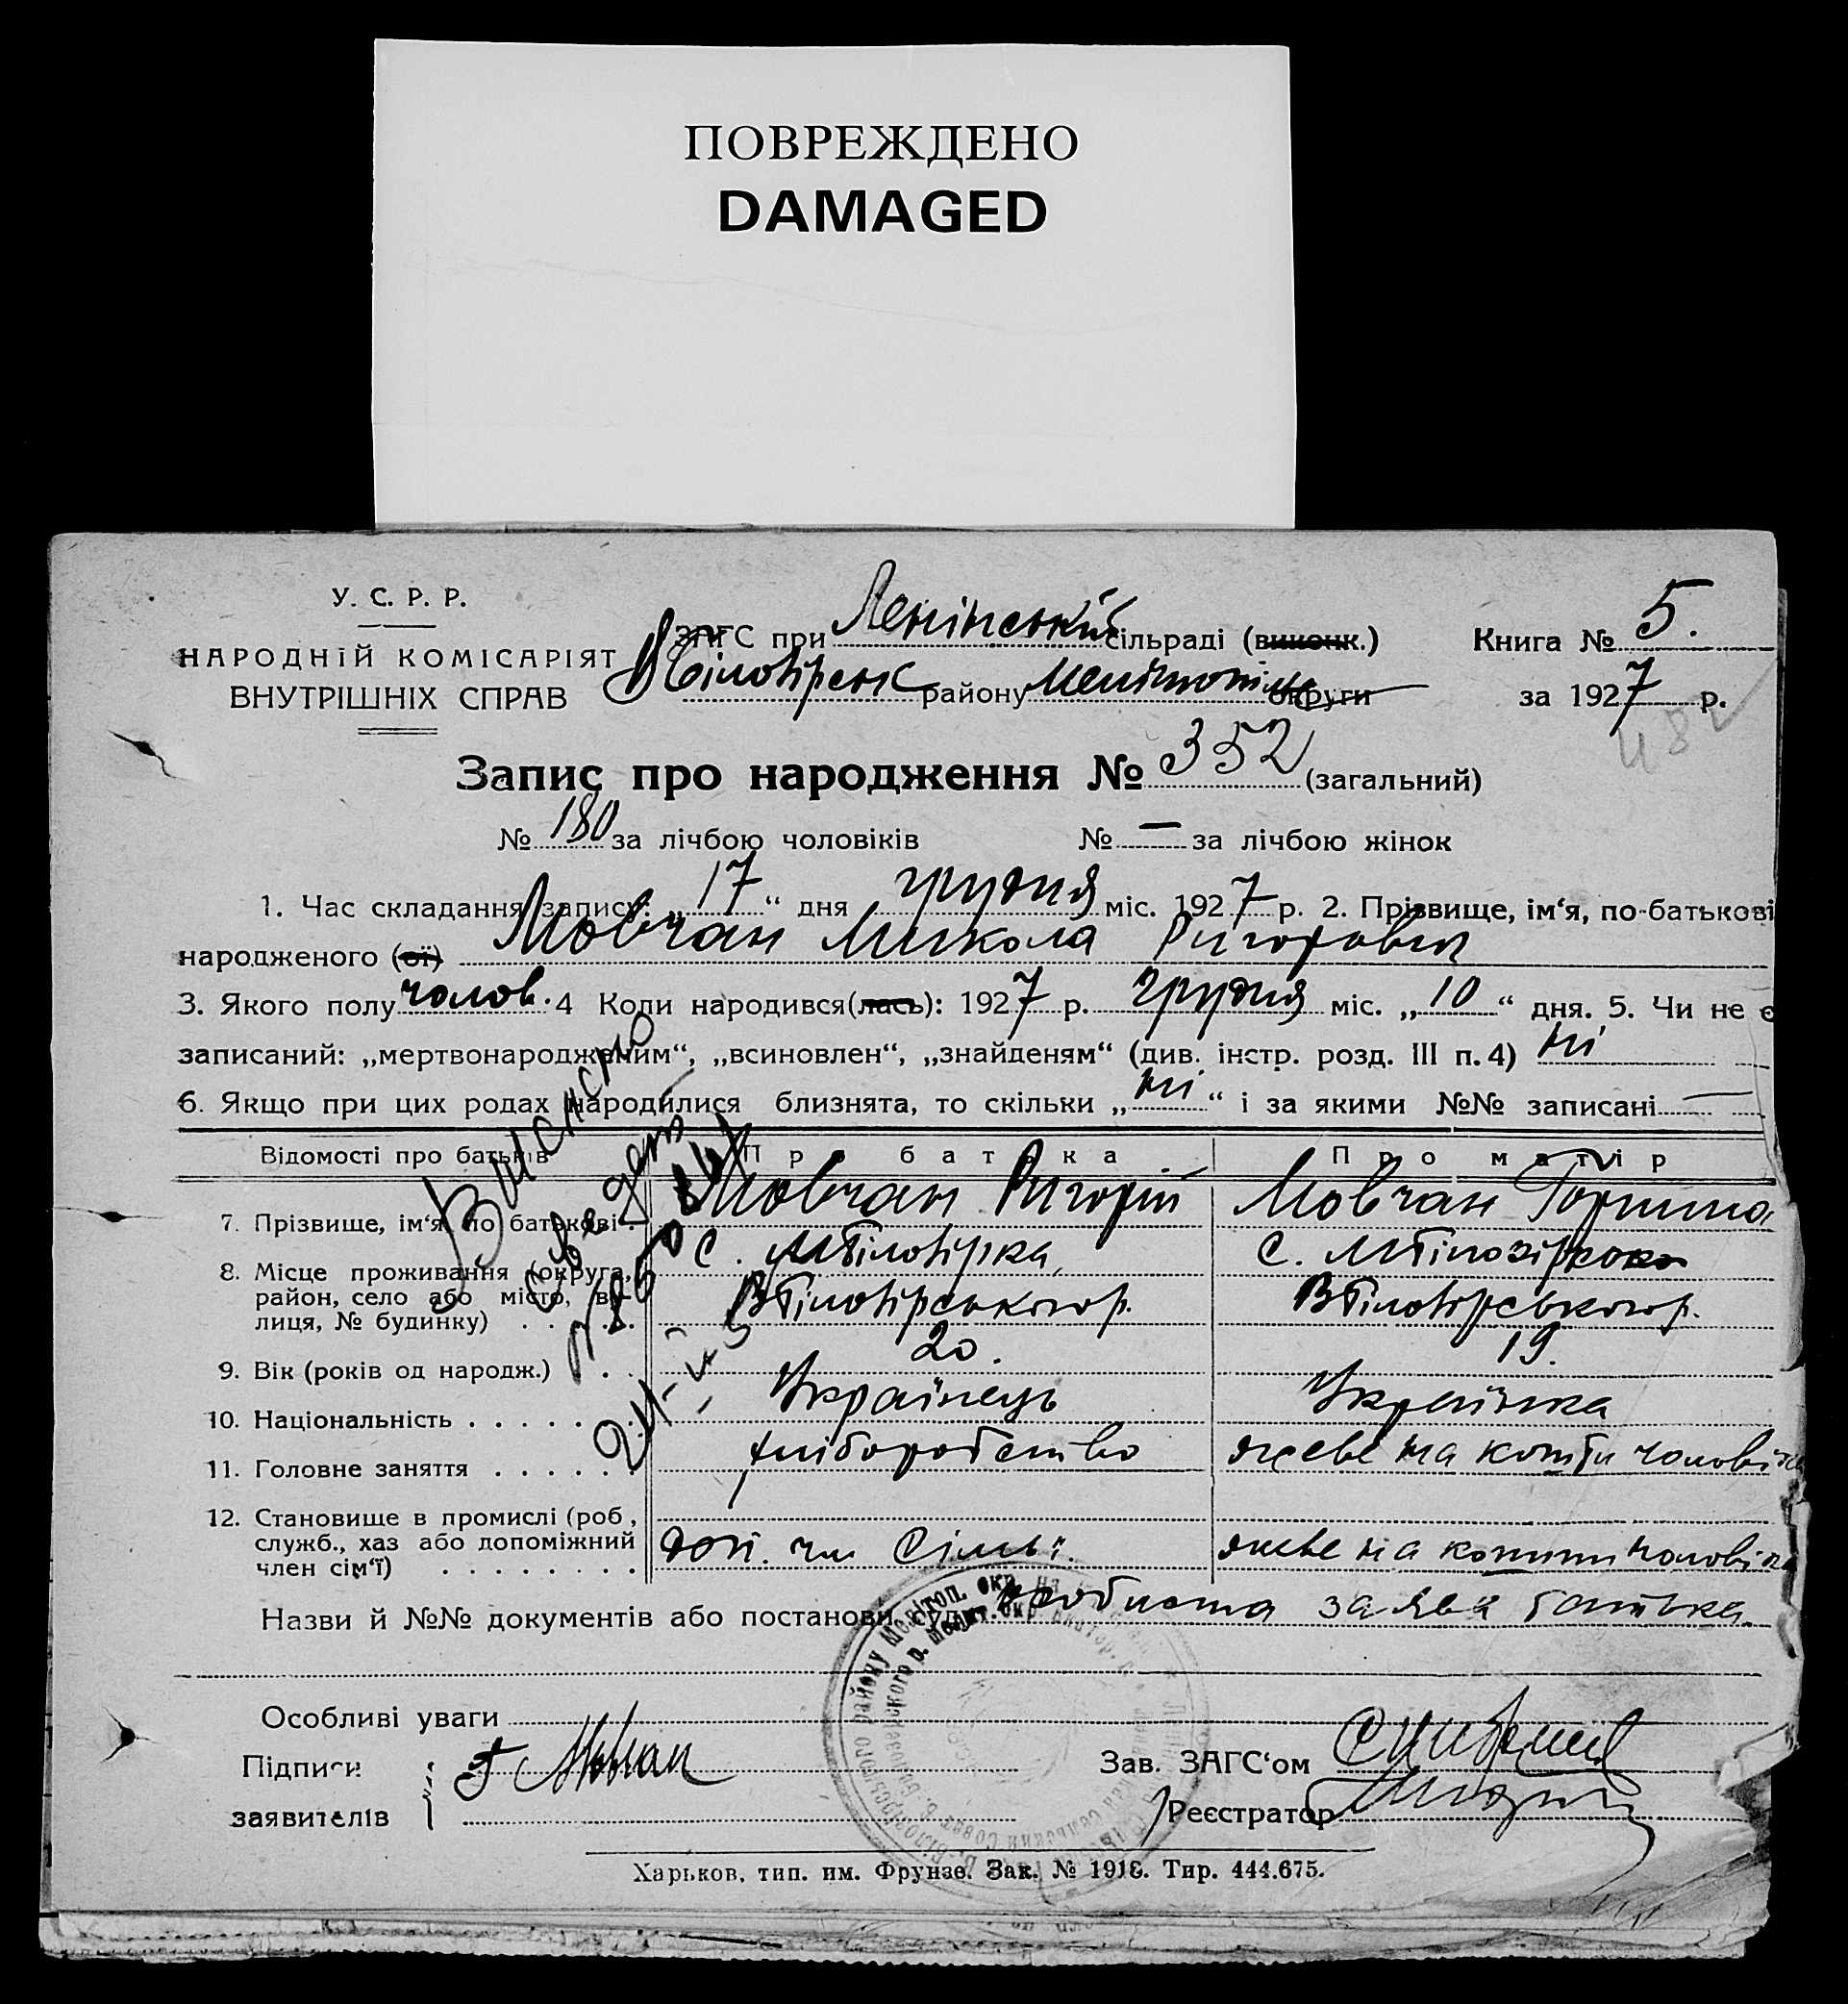 ПОВРЕЖДЕНО
DAMAGED
У. С. Р. Р.
НАРОДНІЙ КОМІСАРІЯТ
ВНУТРІШНІХ СПРАВ
ЗАГС при Ленінській сільраді (виконк.)
Вбілозірськ району Мелітопільс округи
Книга № 5.
за 1927 р.
482
Запис про народження № 352 (загальний)
№ 180 за лічбою чоловіків № — за лічбою жінок
1. Час складання запису: „17“ дня грудня міс. 1927 р. 2. Прізвище, ім‘я, по-батькові
народженого (ої) Мовчан Микола Ригорович
3. Якого полу чолов. 4 Коли народився(лась): 1927 р. грудня міс. „10“ дня. 5. Чи не є
записаний: „мертвонародженим“, „всиновлен“, „знайденям“ (див. інстр. розд. III п. 4) ні
6. Якщо при цих родах народилися близнята, то скільки „ні“ і за якими №№ записані —
Відомості про батьків Про батька Про матір
7. Прізвище, ім‘я по батькові Мовчан Ригорій Мовчан Горпина
8. Місце проживання (округа, район, село або місто, вулиця, № будинку) с. МБілозірка, ВБілозірського р. с. МБілозірка ВБілозірського р.
9. Вік (років од народж.) 20. 19.
10. Національність Українець Українка
11. Головне заняття хліборобство живе на кошти чоловіка
12. Становище в промислі (роб, служб., хаз або допоміжний член сім‘ї) доп. чл сімьї. живе на кошти чоловіка
Назви й №№ документів або постанови суду особиста заява батька.
Особливі уваги
Підписи
заявителів
Г Мовчан
Зав. ЗАГС‘ом
Реєстратор
Харьков, тип. им. Фрунзе. Зак. № 1918. Тир. 444.675.